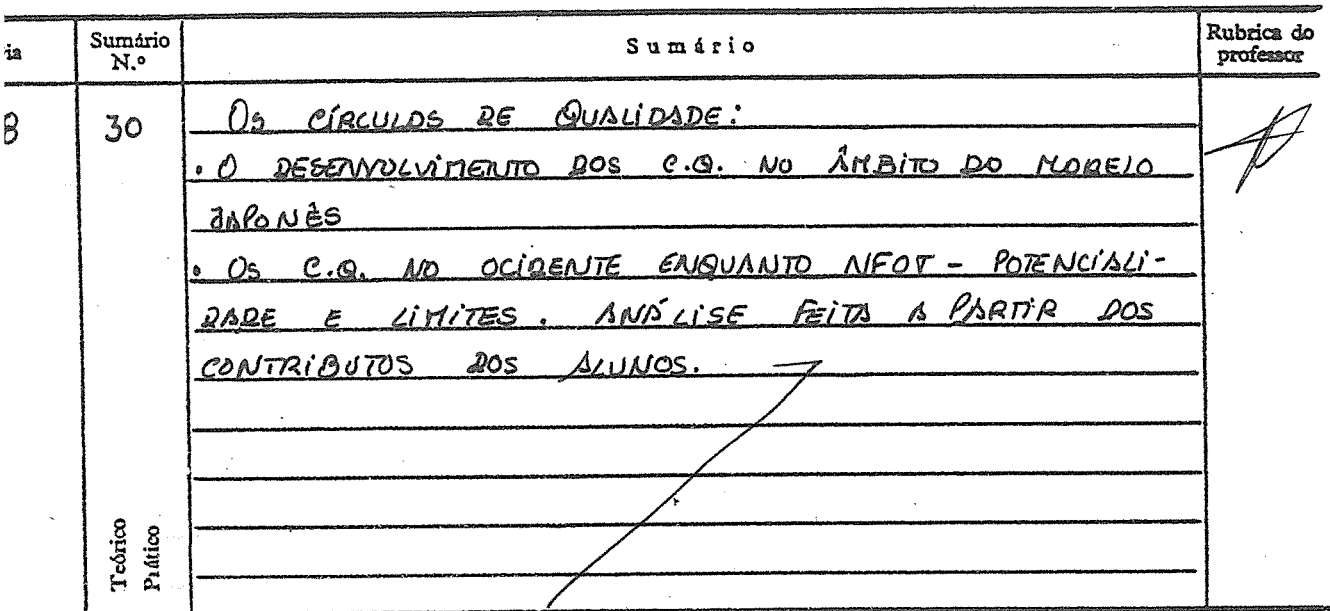 ia
Sumário
N.º
Sumário
Rubrica do
professor
8
30
Os CÍRCULOS DE QUALIDADE:
• O DESENVOLVIMENTO DOS C.Q. NO ÂMBITO DO MODELO
JAPONÊS
• Os C.Q. NO OCIDENTE ENQUANTO NFOT - POTENCIALI-
DADE E LIMITES. ANÁLISE FEITA A PARTIR DOS
CONTRIBUTOS DOS ALUNOS.
Teórico
Prático